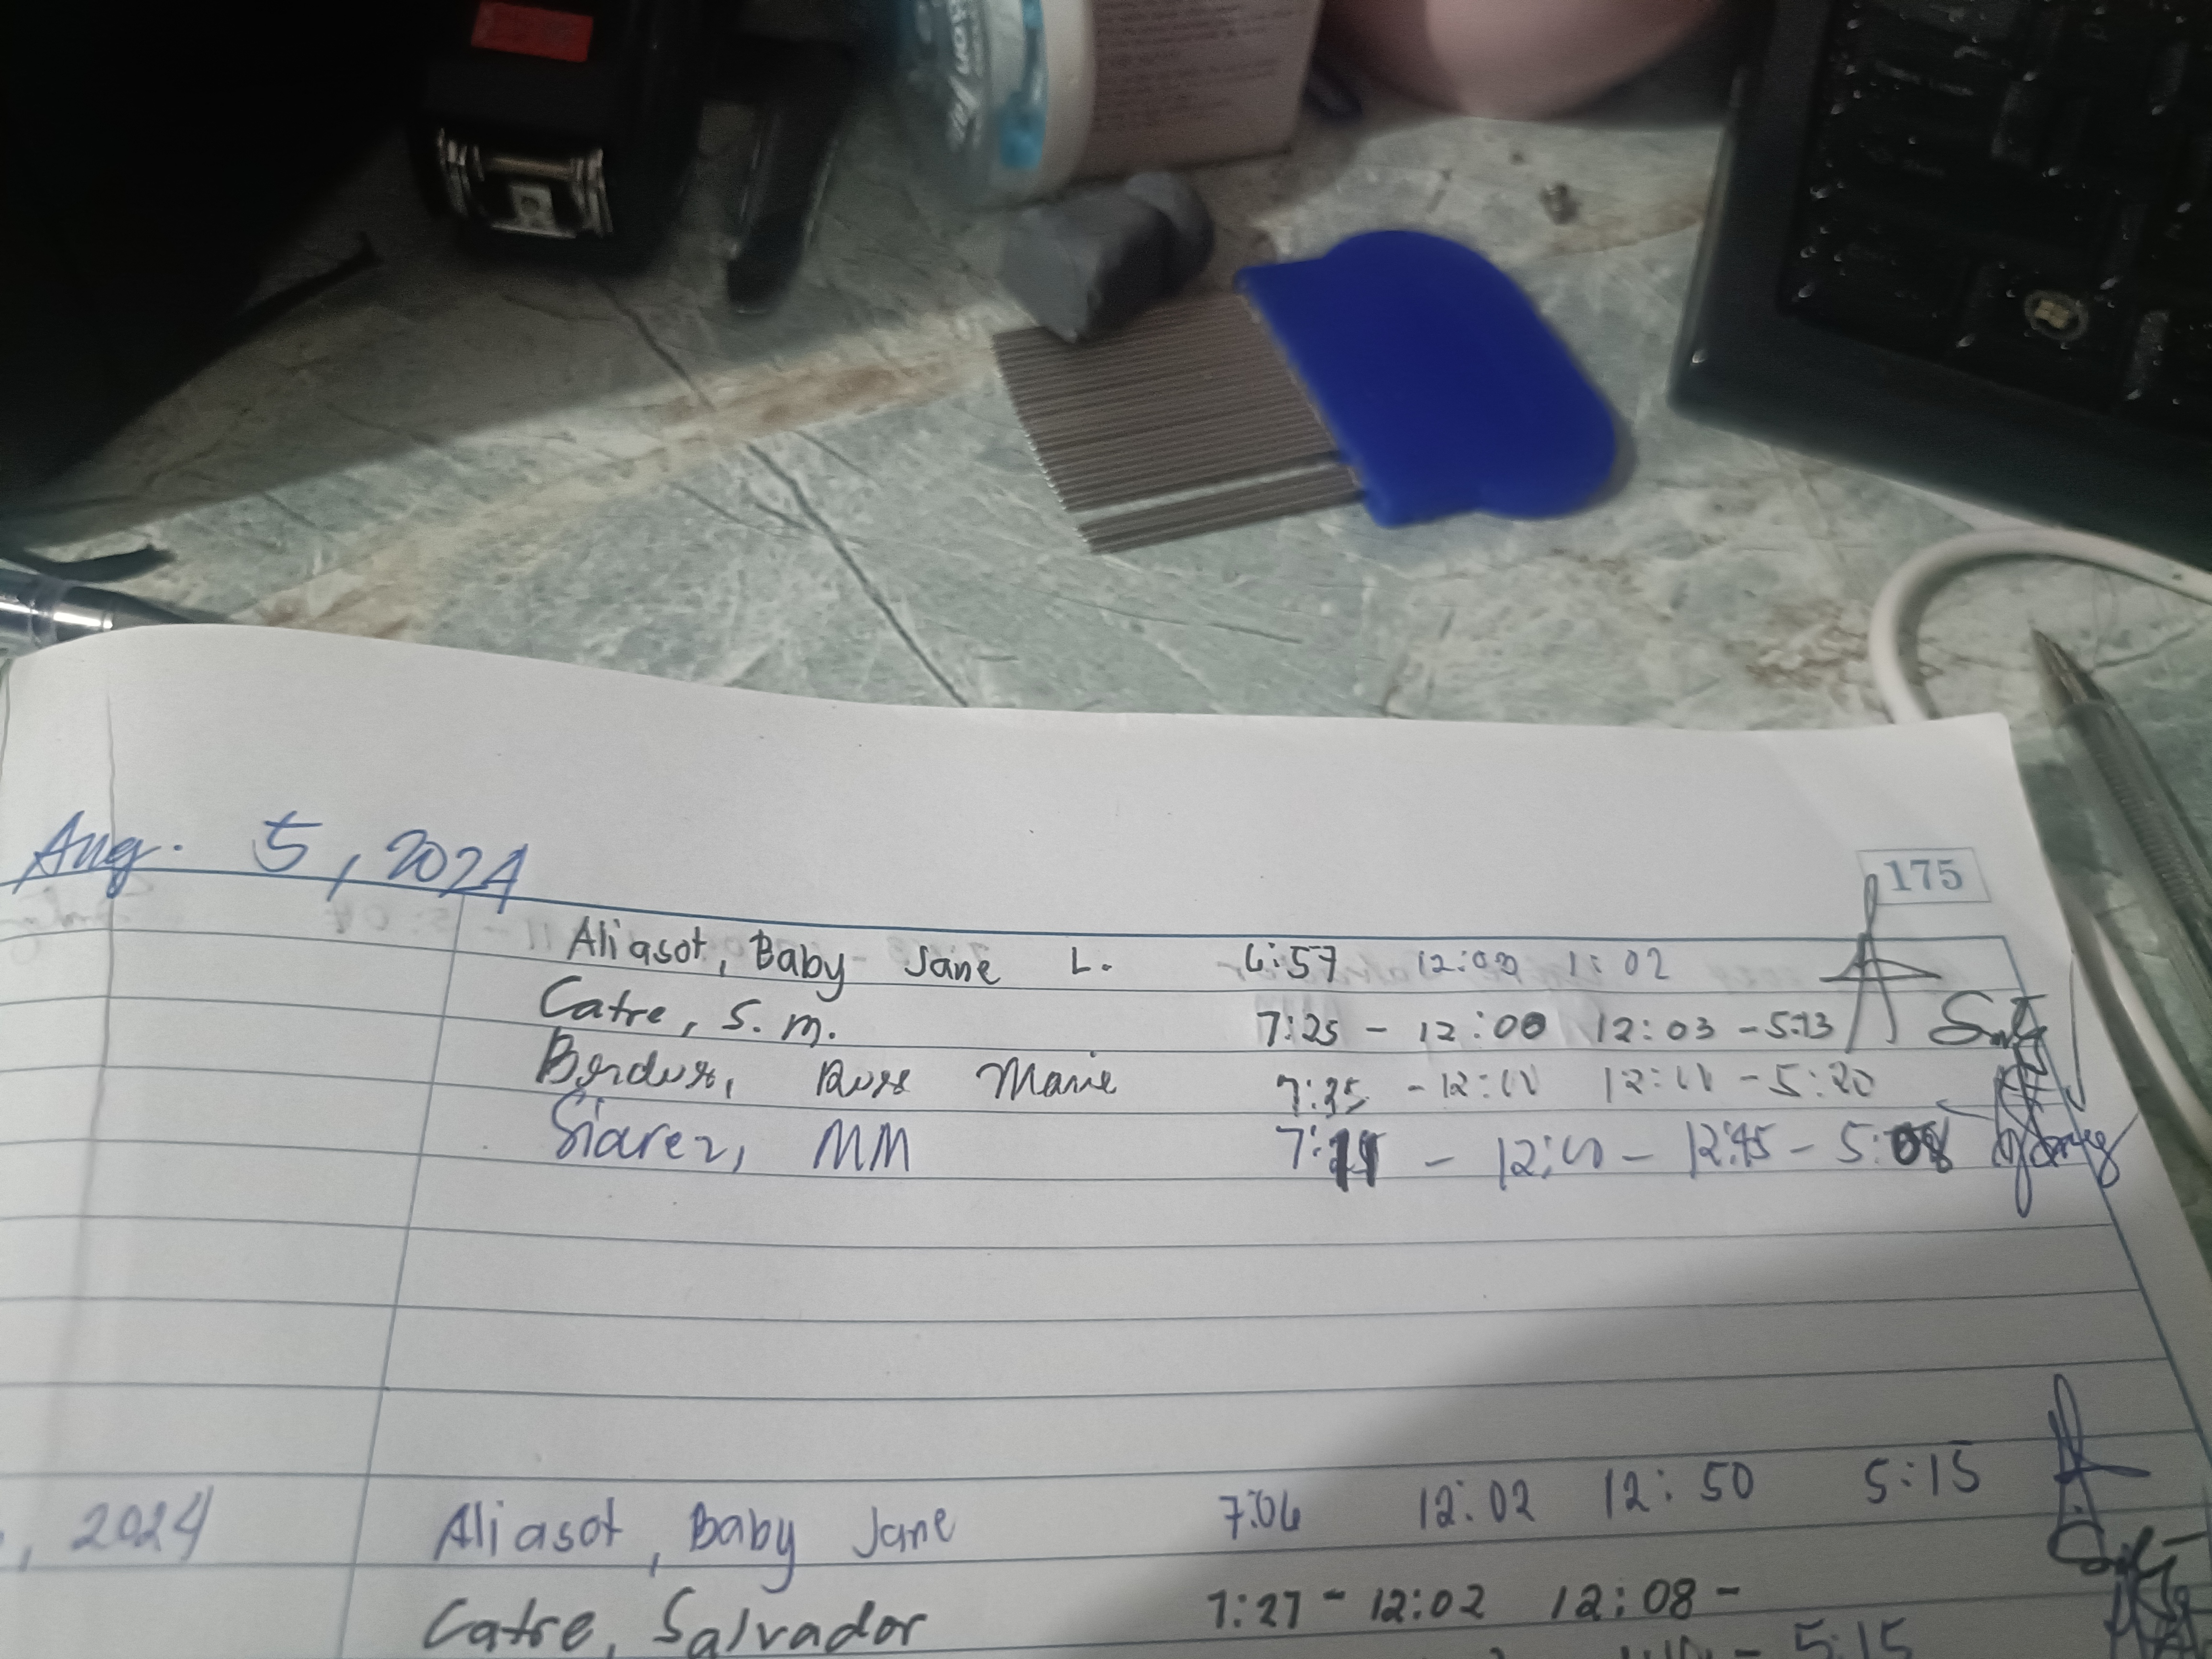 Aug. 5, 2024
175
Aliasot, Baby Jane L. 6:57 12:00 1:02
Catre, S. M. 7:25 - 12:00 12:03 - 5:13
Marie 7:35 - 12:10 12:11 - 5:20
Siarez, MM 7:11 - 12:10 - 12:45 - 5:08
, 2024 Aliasot, Baby Jane 7:06 12:02 12:50 5:15
Catre, Salvador 7:27 - 12:02 12:08 -
- 5:15